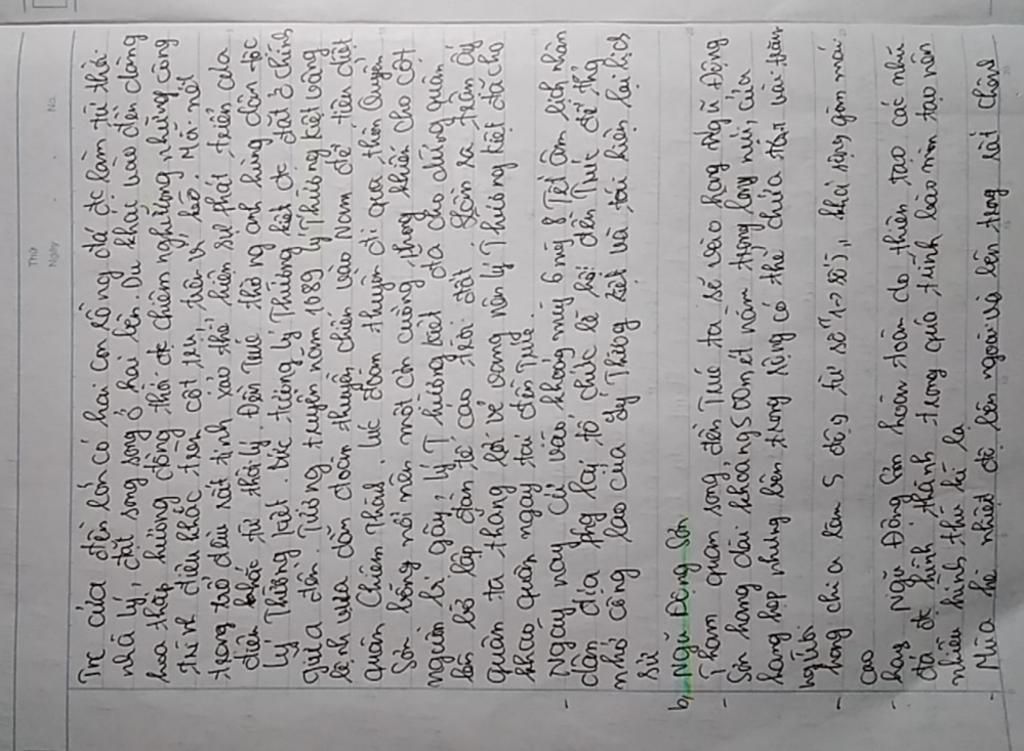 Thứ
Ngày
No.
Trc cửa đền lớn có hai con rồng đá đc làm từ thời
nhà Lý, đặt song song ở hai bên. Du khai vào đền dâng
hoa thắp hương đồng thời đc chiêm ngưỡng những công
trình điêu khắc trên cột trụ, trên vì kèo. Mỗi nét
trang trí đều rất tinh xảo thể hiện sự phát triển của
điêu khắc từ thời lý. Đền Trúc thờ ng anh hùng dân tộc
Lý Thường Kiệt. bức tượng Lý Thường Kiệt đc đặt ở chính
giữa đền. Tương truyền năm 1089 Lý Thường Kiệt vâng
lệnh vua dẫn đoàn thuyền chiến vào Nam để tiêu diệt
quân Chiêm Thành. Lúc đoàn thuyền đi qua thôn Quyển
Sơn bỗng nổi nên một cơn cuồng phong khiến cho cột
nguồn bị gãy, Lý Thường Kiệt đã cho dừng quân
lên bờ lập đàn tế cáo trời đất. Sau ra trận ấy
quân ta thắng lợi vẻ vang nên Lý Thường Kiệt đã cho
khao quân ngay tại đền Trúc.
- Ngày nay cứ vào khoảng mùg 6 mùg 8 Tết âm lịch nhân
dân địa phg lại tổ chức lễ hội đền Trúc để tg
nhớ công lao của Lý Thường Kiệt và tái hiện lại lịch
sử
b, Ngũ Động Sơn
- Thăm quan song, đền Trúc ta sẽ vào hang Ngũ Động
Sơn hang dài khoảng 500m nằm trong lòng núi, cửa
hang hẹp nhưng bên trong rộng có thể chứa tới vài trăm
người
- hang chia làm 5 độg từ số 1 -> số 5, khá rộng gồm mái
cao
- hang Ngũ Động Sơn hoàn toàn do thiên tạo các nhũ
đá đc hình thành trong quá trình bào mòn tạo nên
nhiều hình thù kì lạ
- Mùa hè nhiệt độ bên ngoài và bên trong rất chênh